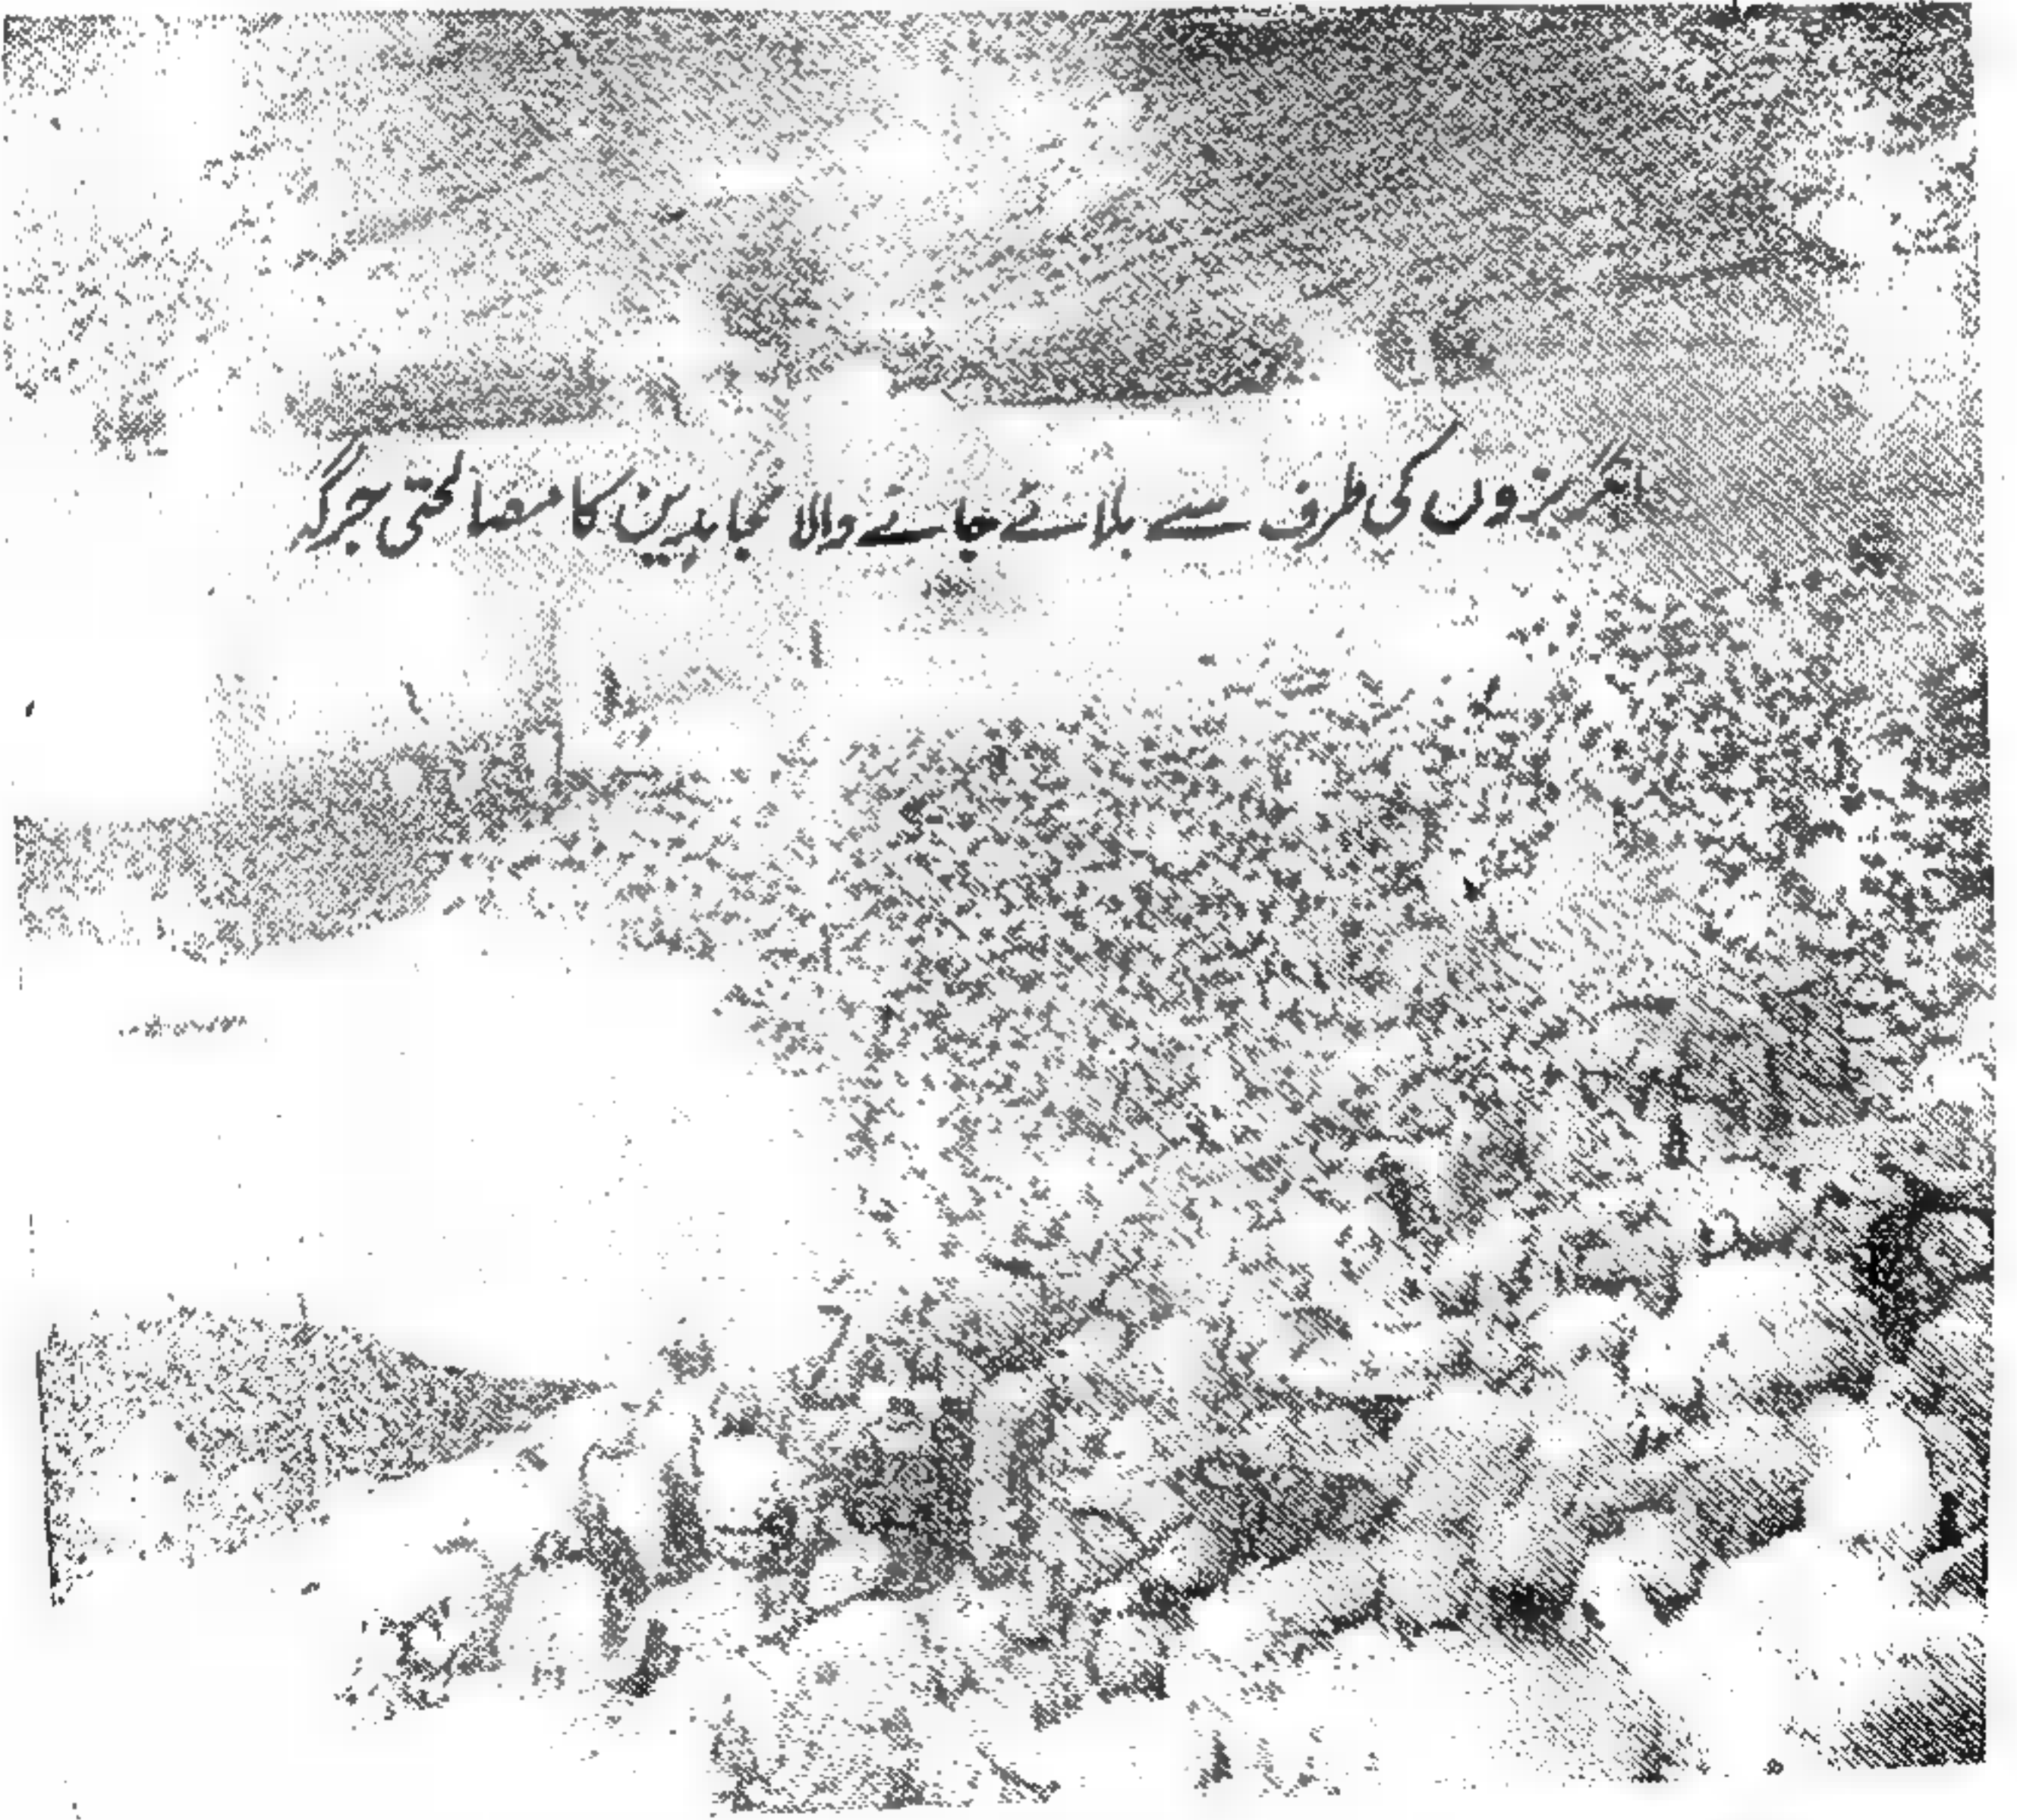 انگریزوں کی طرف سے بلائے جانے والا مجاہدین کا مصالحتی جرگہ